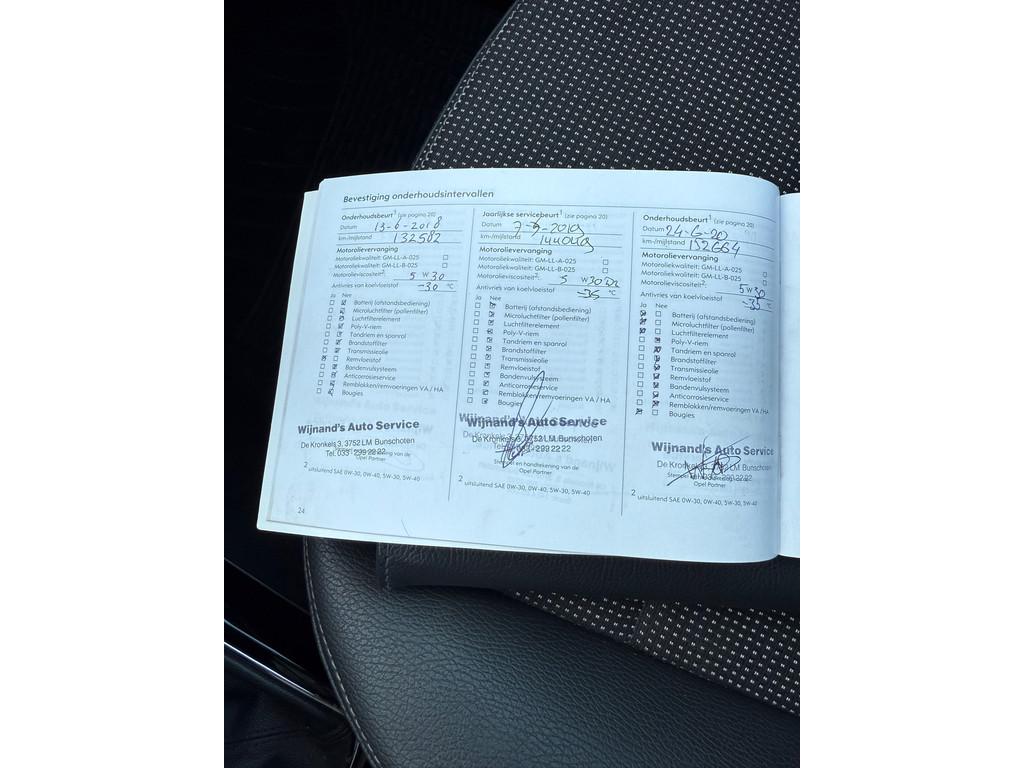 Bevestiging onderhoudsintervallen
Onderhoudsbeurt1 (zie pagina 20)
Datum 13-6-2018
km-/mijlstand 132582
Motorolievervanging
Motoroliekwaliteit: GM-LL-A-025
Motoroliekwaliteit: GM-LL-B-025
Motorolieviscositeit2: 5 W 30
Antivries van koelvloeistof -30 °C
Ja Nee
Batterij (afstandsbediening)
Microluchtfilter (pollenfilter)
Luchtfilterelement
Poly-V-riem
Tandriem en spanrol
Brandstoffilter
Transmissieolie
Remvloeistof
Bandenvulsysteem
Anticorrosieservice
Remblokken/remvoeringen VA / HA
Bougies
Wijnand's Auto Service
De Kronkels 3, 3752 LM Bunschoten
Tel. 033 - 299 22 22
Opel Partner
2 uitsluitend SAE 0W-30, 0W-40, 5W-30, 5W-40
24
Jaarlijkse servicebeurt1 (zie pagina 20)
Datum 7-5-2019
km-/mijlstand 144049
Motorolievervanging
Motoroliekwaliteit: GM-LL-A-025
Motoroliekwaliteit: GM-LL-B-025
Motorolieviscositeit2: 5 W30
Antivries van koelvloeistof -35 °C
Ja Nee
Batterij (afstandsbediening)
Microluchtfilter (pollenfilter)
Luchtfilterelement
Poly-V-riem
Tandriem en spanrol
Brandstoffilter
Transmissieolie
Remvloeistof
Bandenvulsysteem
Anticorrosieservice
Remblokken/remvoeringen VA / HA
Bougies
Wijnand's Auto Service
De Kronkels 3, 3752 LM Bunschoten
Tel. 033 - 299 22 22
Stempel en handtekening van de
Opel Partner
2 uitsluitend SAE 0W-30, 0W-40, 5W-30, 5W-40
Onderhoudsbeurt1 (zie pagina 20)
Datum 24-6-20
km-/mijlstand 152664
Motorolievervanging
Motoroliekwaliteit: GM-LL-A-025
Motoroliekwaliteit: GM-LL-B-025
Motorolieviscositeit2: 5 W 30
Antivries van koelvloeistof -35 °C
Ja Nee
Batterij (afstandsbediening)
Microluchtfilter (pollenfilter)
Luchtfilterelement
Poly-V-riem
Tandriem en spanrol
Brandstoffilter
Transmissieolie
Remvloeistof
Bandenvulsysteem
Anticorrosieservice
Remblokken/remvoeringen VA / HA
Bougies
Wijnand's Auto Service
De Kronkels 3, 3752 LM Bunschoten
Opel Partner
2 uitsluitend SAE 0W-30, 0W-40, 5W-30, 5W-40